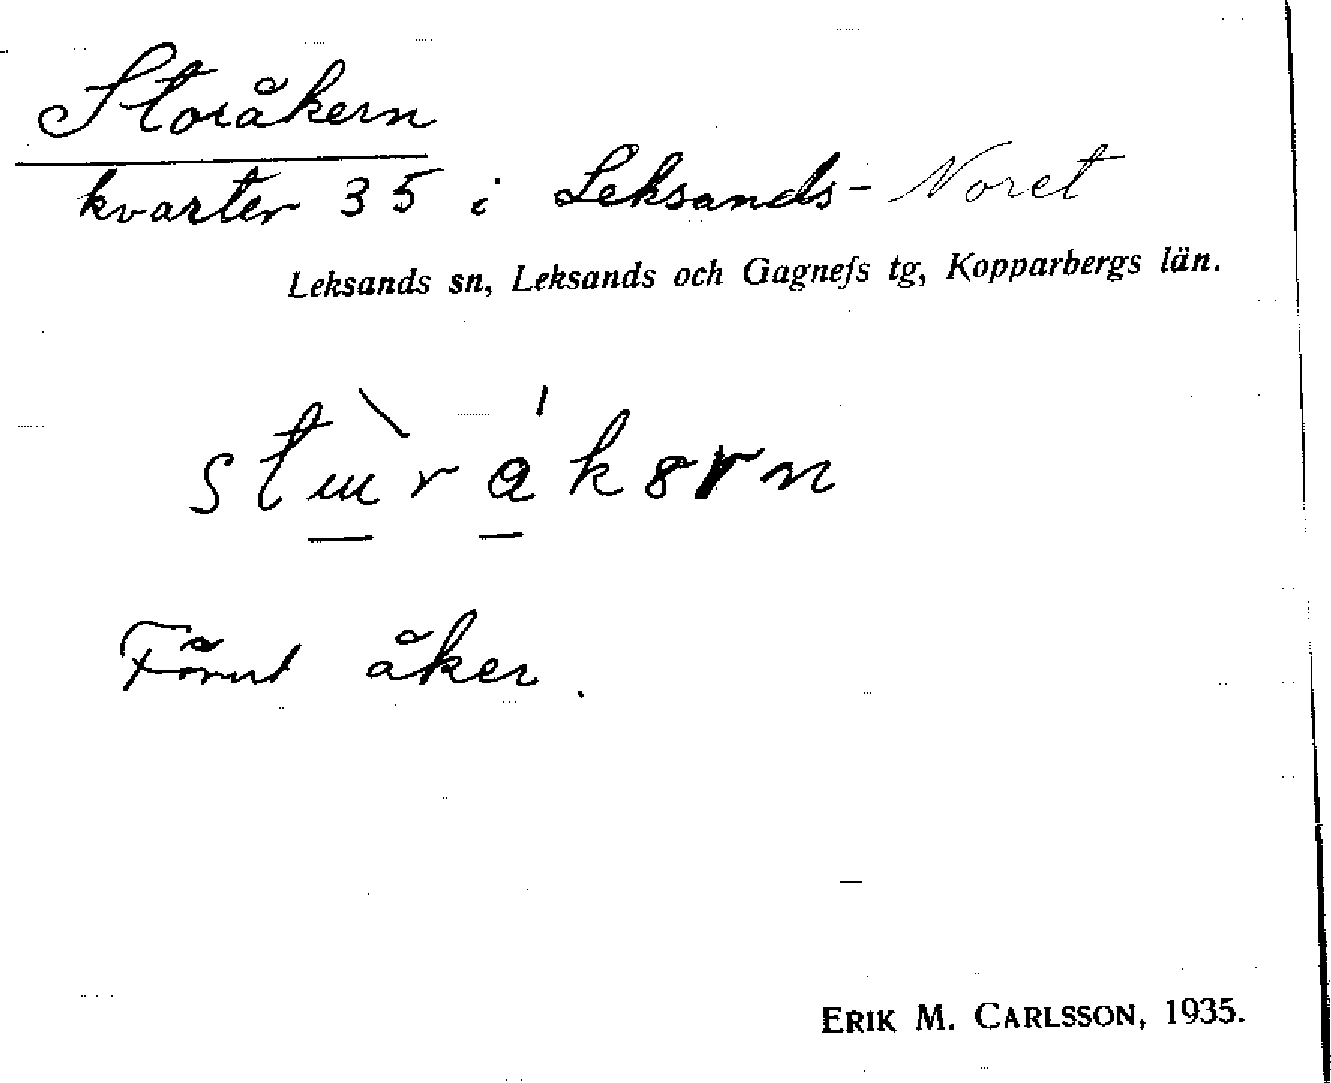 Storåkern
kvarter 35 i Leksands-Noret
Leksands sn, Leksands och Gagnefs tg, Kopparbergs län.
Förut åker.
ERIK M. CARLSSON, 1935.